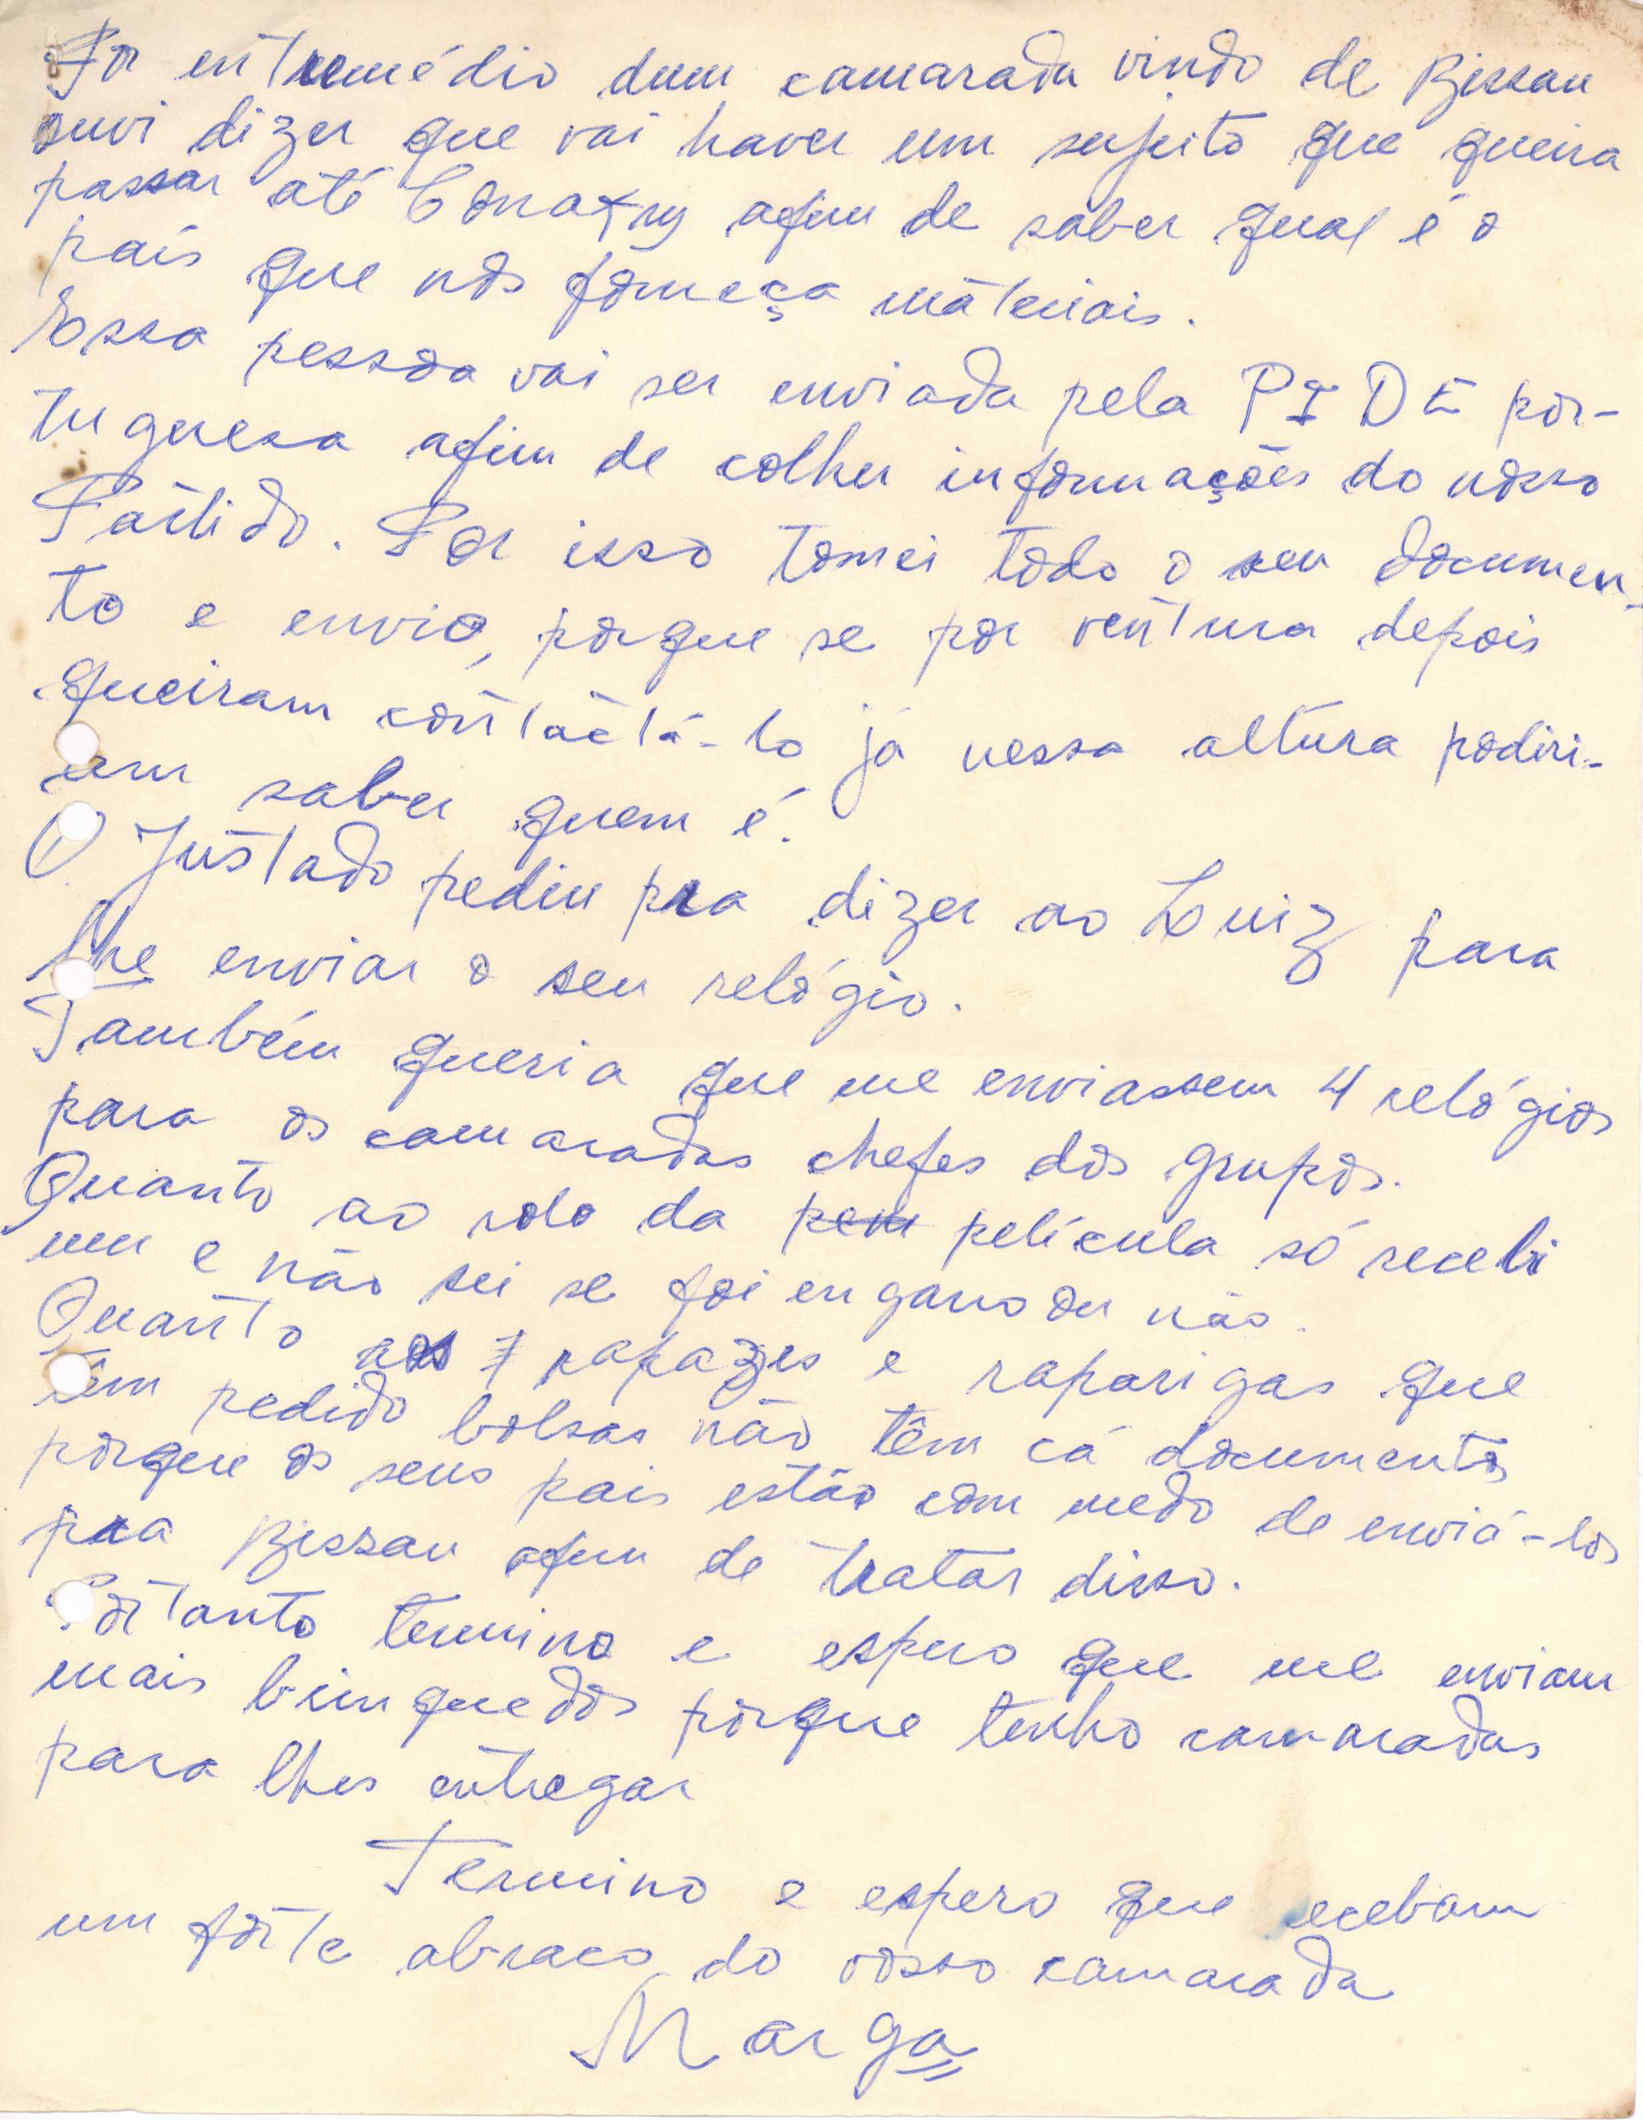 Por entremédio dum camarada vindo de Bissau
ouvi dizer que vai haver um sujeito que queira
passar até Conakry afim de saber qual é o
país que nos forneça materiais.
Essa pessoa vai ser enviada pela PIDE por-
tuguesa afim de colher informações do nosso
Partido. Por isso tomei todo o seu documen-
to e envio, porque se por ventura depois
queiram contactá-lo já nessa altura podiri-
am saber quem é.
O Justado pediu pra dizer ao Luiz para
lhe enviar o seu relógio.
Também queria que me enviassem 4 relógios
para os camaradas chefes dos grupos.
Quanto ao rolo da pem película só recebi
um e não sei se foi engano ou não.
Quanto aos 7 rapazes e raparigas que
têm pedido bolsas não têm cá documentos
porque os seus pais estão com medo de enviá-los
pra Bissau afim de tratar disso.
Portanto termino e espero que me enviam
mais brinquedos porque tenho camaradas
para lhes entregar
Termino e espero que recebam
um forte abraço do vosso camarada
Marga